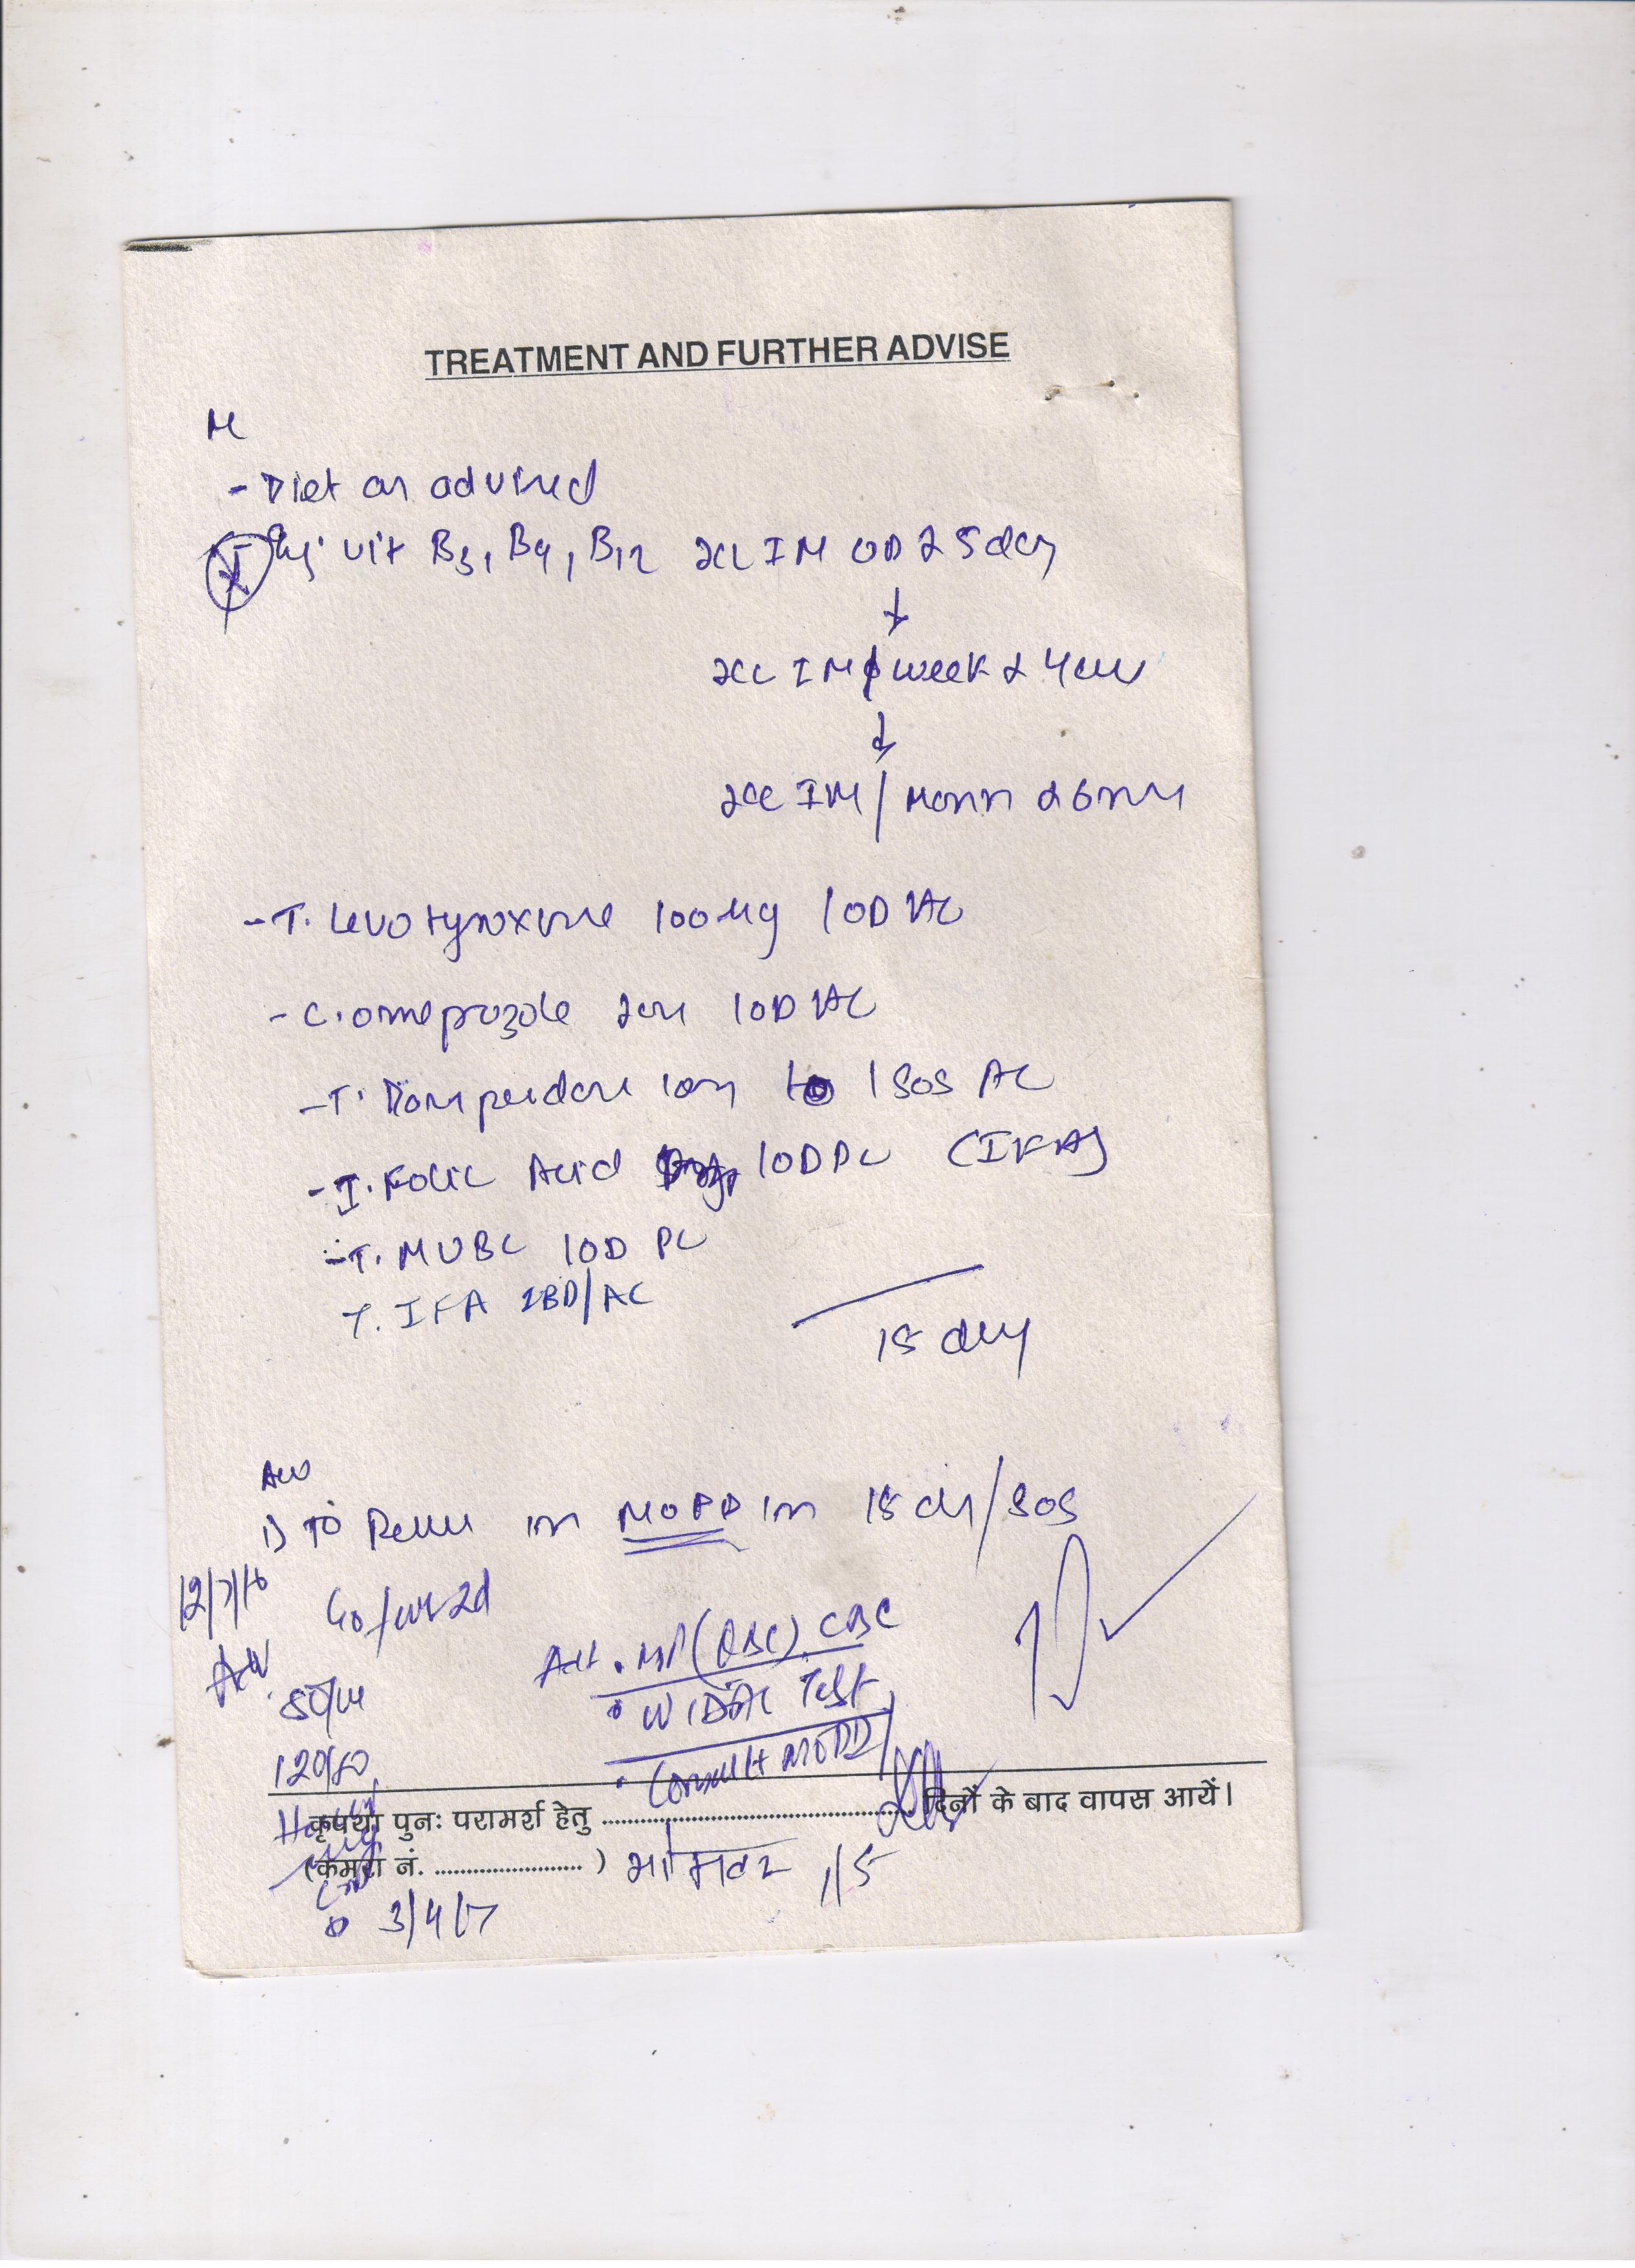 TREATMENT AND FURTHER ADVISE
- Diet as advised
- Inj vit B3, B9, B12 2cc IM OD x 5 day
↓
2cc IM / week x 4
↓
2cc IM / Month x 6
- T. Levotyroxine 100 µg 1 OD AC
- C. omeprazole 20 1 OD AC
- T. Domperidone 10 1 SOS AC
- T. Folic Acid 1 OD PC (IFA)
- T. MVBC 1 OD PC
T. IFA 1BD/AC
15 day
Adv
1) To Review in MOPD in 15 /SOS
C/o 2d
Adv . MP (QBC), CBC
80/m
• WIDAL Test
120/80
• Consult MOPD
कृपया पुनः परामर्श हेतु .......................................... दिनों के बाद वापस आयें।
(कमरा नं. ........................ ) सोमवार 1/5
3/4/17